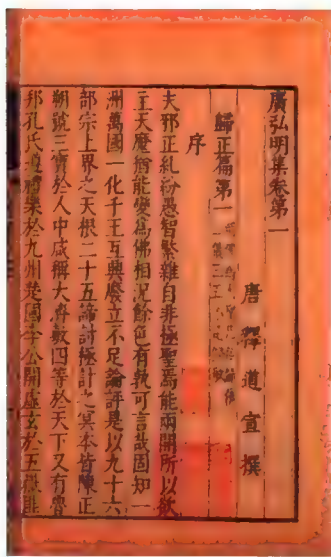 廣弘明集卷第一
唐釋道宣撰
歸正篇第一
序
夫邪正糺紛愚智繁雜自非極聖焉能兩開所以欲
主天魔猶能變爲佛相況餘色有孰可言哉固知一
洲萬國一化千王互興廢立不足論評是以九十六
部宗上界之天根二十五諦討極計之冥本皆陳正
朝號三寶於人中咸稱大濟敷四等於天下又有魯
邦孔氏道禮樂於九州楚國李公開虛玄於五嶽匪